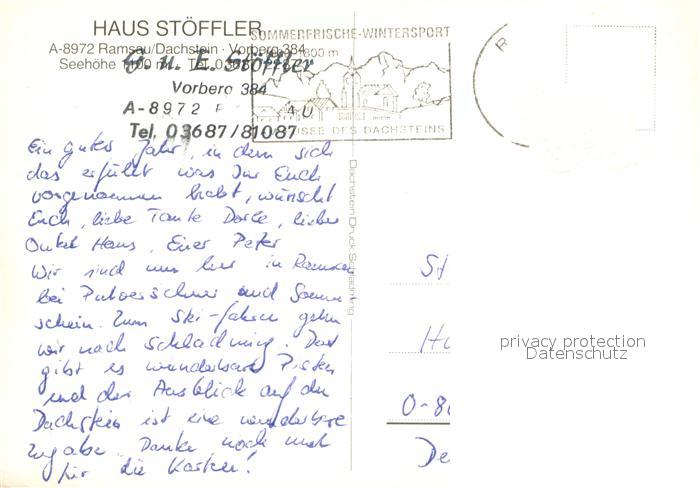 HAUS STÖFFLER
A-8972 Ramsau/Dachstein · Vorberg 384
Seehöhe 1100 m · Tel. 03687
G. u. E. Stöffler
Vorberg 384
A-8972 R AU
Tel. 03687/81087
SOMMERFRISCHE-WINTERSPORT
FUSSE DES DACHSTEINS
Ein gutes Jahr, in dem sich
das erfüllt was Ihr Euch
vorgenommen habt, wünscht
Euch, liebe Tante Dorle, lieber
Onkel Hans, Euer Peter
Wir sind nun hier in Ramsau
bei Pulverschnee und Sonnen-
schein. Zum Ski-fahren gehn
wir nach Schladming. Dort
gibt es wunderbare Pisten
und der Ausblick auf den
Dachstein ist eine wunderbare
Zugabe. Danke noch mal
für die Karten!
Dachstein Druck Schladming
St
Ha
O-80
De
privacy protection
Datenschutz